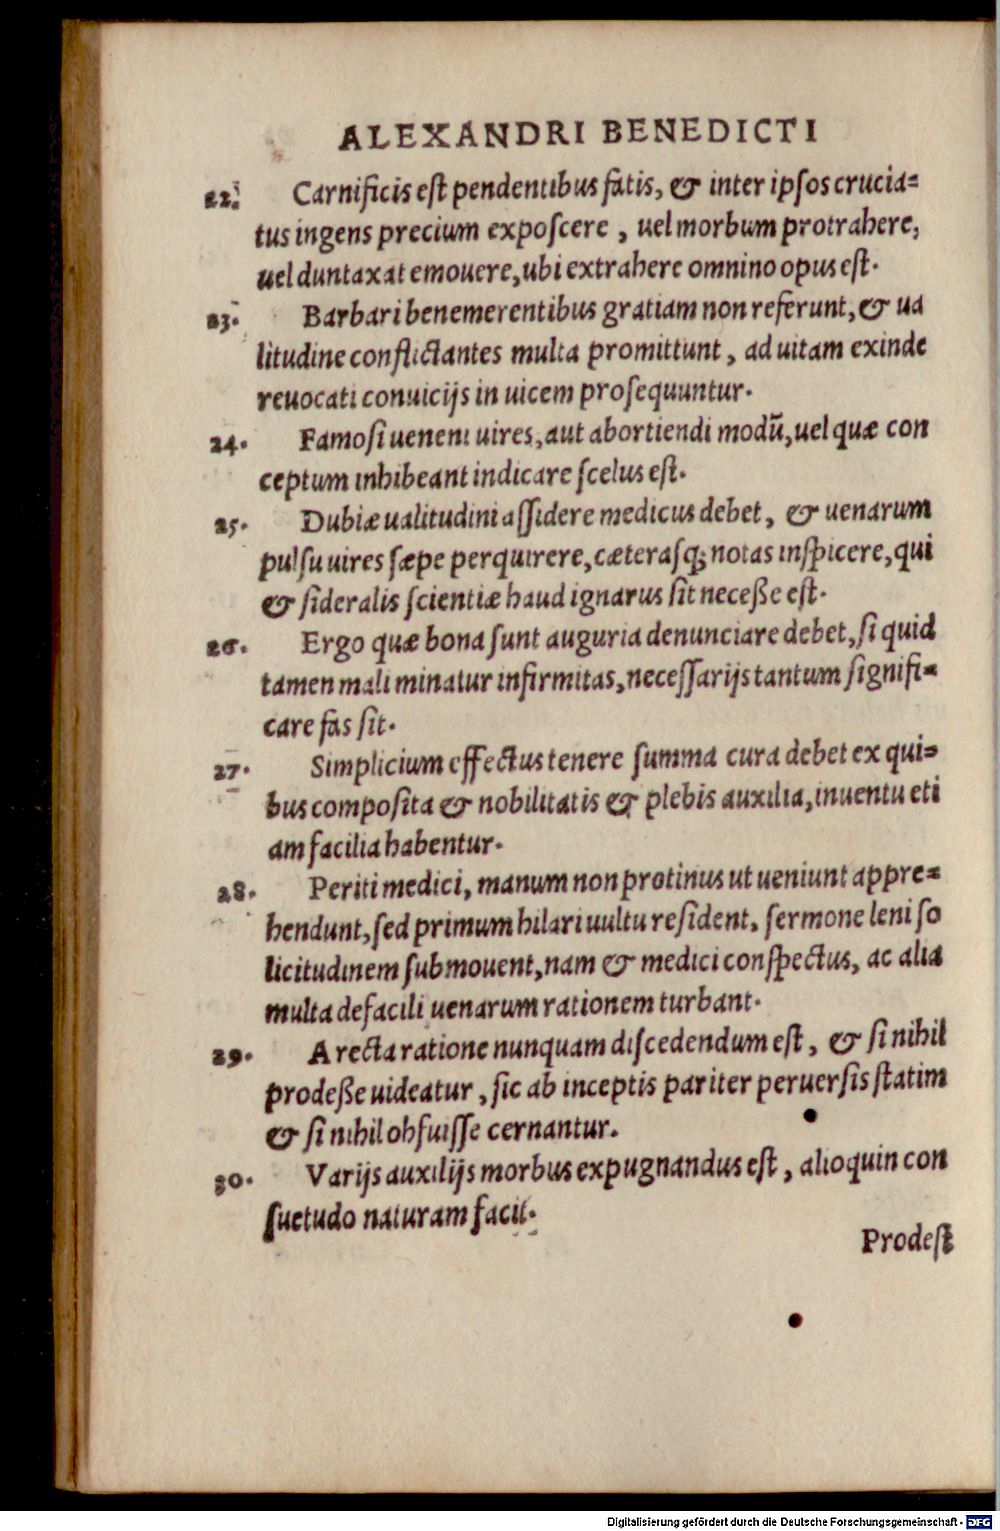 ALEXANDRI BENEDICTI
22. Carnificis est pendentibus fatis, & inter ipsos crucia=
tus ingens precium exposcere, uel morbum protrahere,
uel duntaxat emouere, ubi extrahere omnino opus est.
23. Barbari benemerentibus gratiam non referunt, & ua
litudine conflictantes multa promittunt, ad uitam exinde
reuocati conuicijs in uicem prosequuntur.
24. Famosi ueneni uires, aut abortiendi modũ, uel quæ con
ceptum inhibeant indicare scelus est.
25. Dubiæ ualitudini assidere medicus debet, & uenarum
pulsu uires sæpe perquirere, cæterasq; notas inspicere, qui
& sideralis scientiæ haud ignarus sit necesse est.
26. Ergo quæ bona sunt auguria denunciare debet, si quid
tamen mali minatur infirmitas, necessarijs tantum signifi=
care fas sit.
27. Simplicium effectus tenere summa cura debet ex qui=
bus composita & nobilitatis & plebis auxilia, inuentu eti
am facilia habentur.
28. Periti medici, manum non protinus ut ueniunt appre=
hendunt, sed primum hilari uultu resident, sermone leni so
licitudinem submouent, nam & medici conspectus, ac alia
multa de facili uenarum rationem turbant.
29. A recta ratione nunquam discedendum est, & si nihil
prodesse uideatur, sic ab inceptis pariter peruersis statim
& si nihil obfuisse cernantur.
30. Varijs auxilijs morbus expugnandus est, alioquin con
suetudo naturam facit.
Prodest
Digitalisierung gefördert durch die Deutsche Forschungsgemeinschaft - DFG